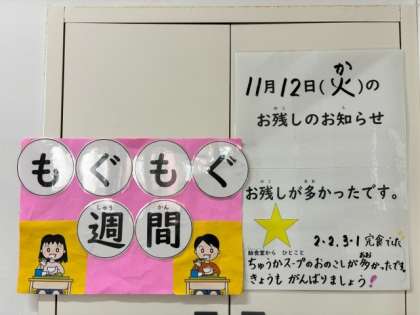 もぐもぐ
週間
しゅう かん
11月12日(火)の
か
お残しのお知らせ
お残しが多かったです。
2-2.3-1 完食でした
給食室から ひとこと
ちゅうかスープのおのこしが多かったです。
きょうも がんばりましょう!